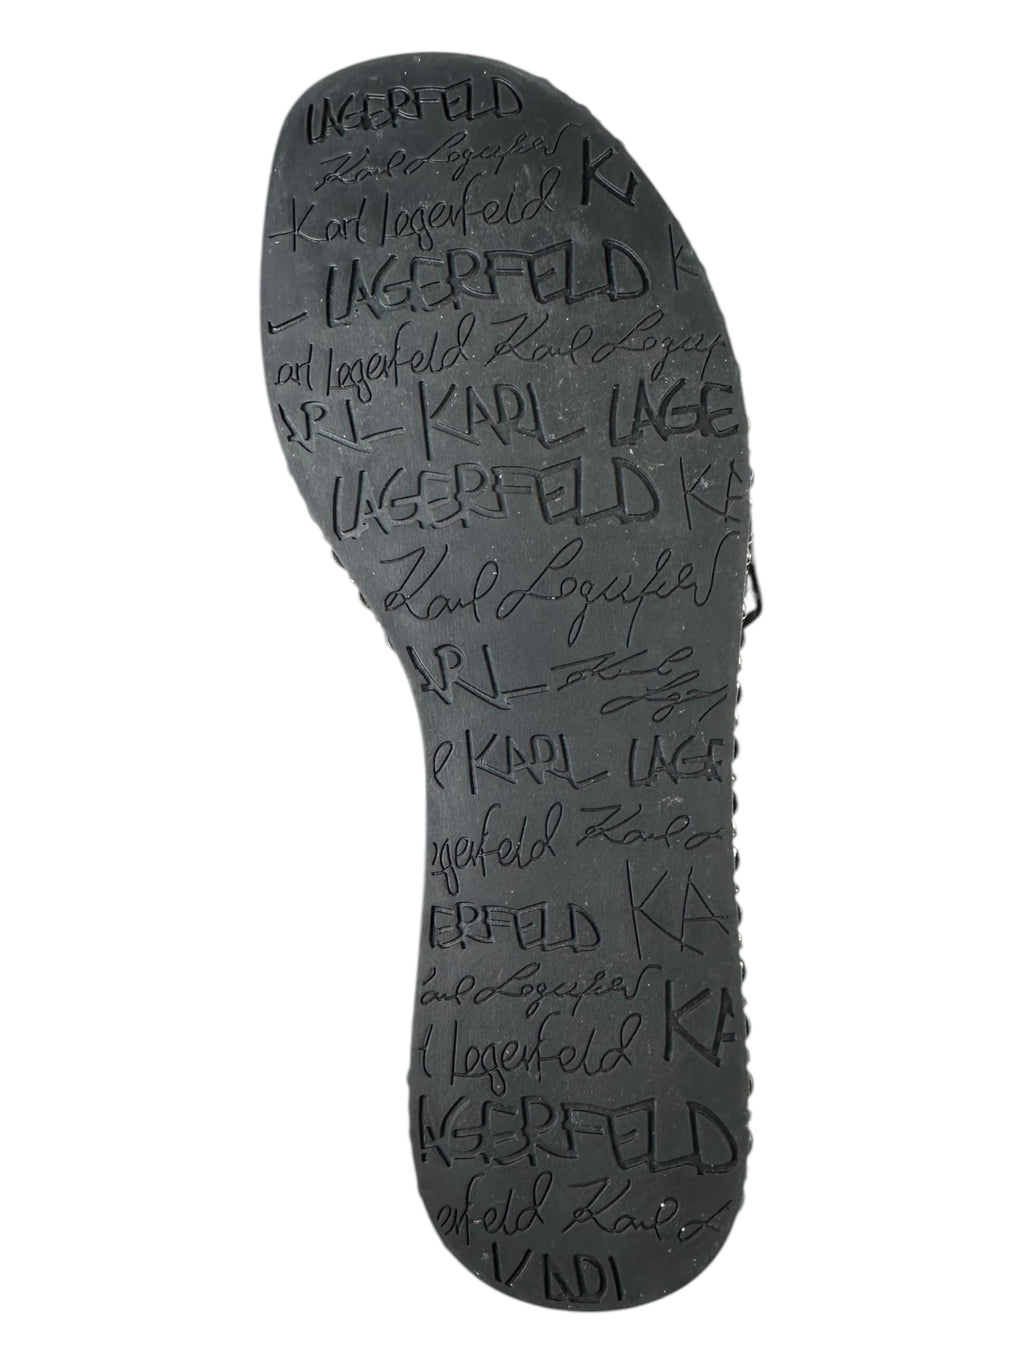 LAGERFELD
Karl Lagerfeld
KA
Karl Lagerfeld
K
LAGERFELD
arl Lagerfeld Karl Lagerf
ARL KARL LAGE
LAGERFELD KA
Karl Lagerfeld
ARL Karl Lager
l KARL LAGE
agerfeld Karl L
KA
ERFELD
arl Lagerfeld
KA
l Lagerfeld
AGERFELD
erfeld Karl L
KARL